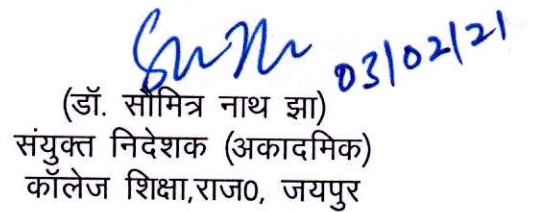 03/02/21
(डॉ. सौमित्र नाथ झा)
संयुक्त निदेशक (अकादमिक)
कॉलेज शिक्षा,राज0, जयपुर